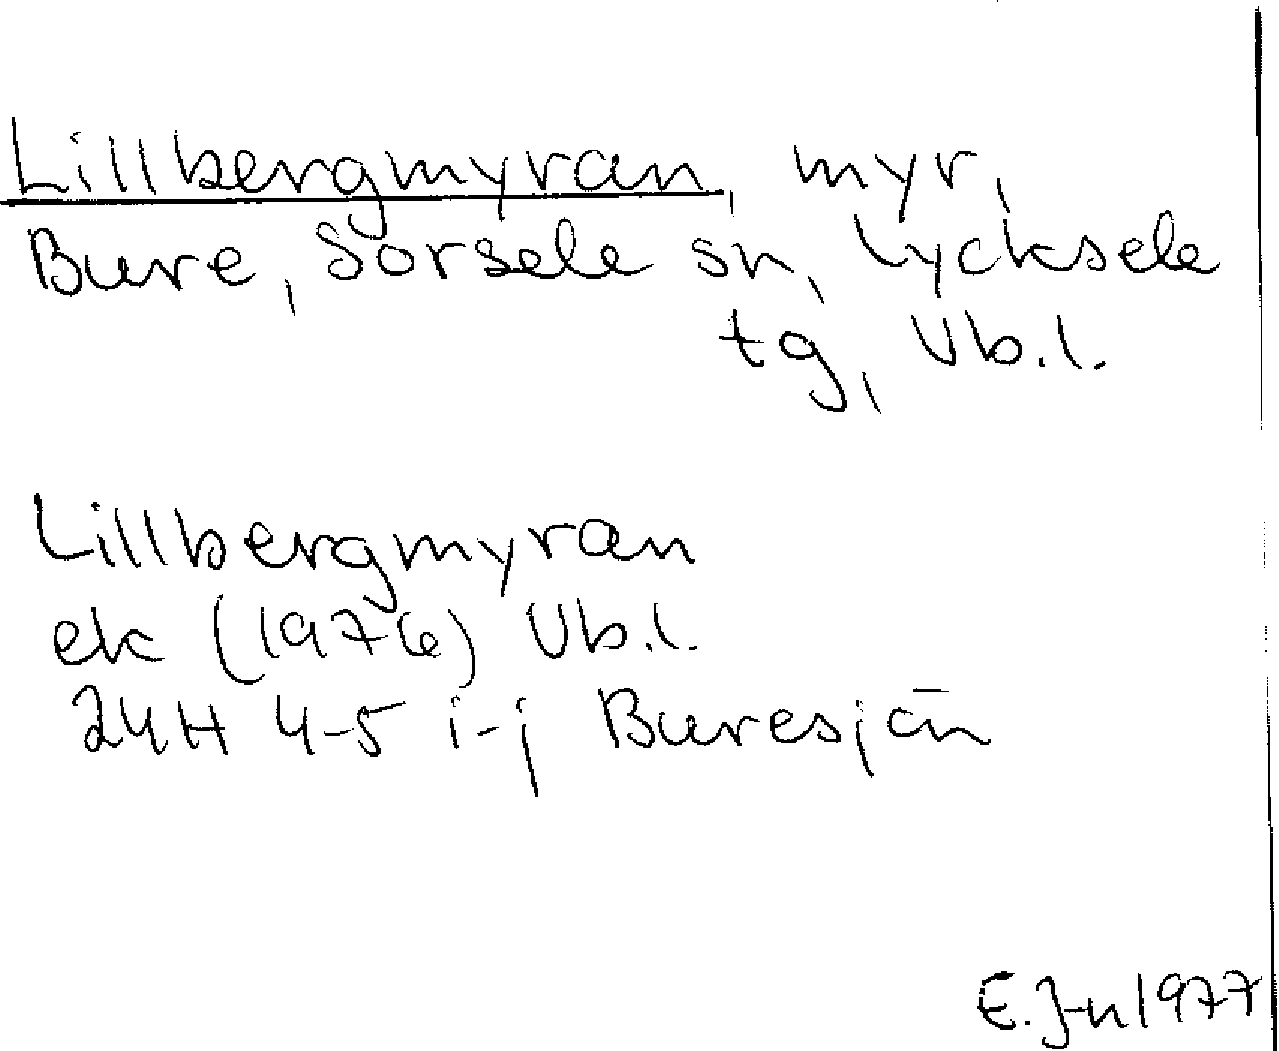 Lillbergmyran, myr,
Bure, Sorsele sn, Lycksele
tg, Vb.l.
Lillbergmyran
ek (1976) Vb.l.
24H 4-5 i-j Buresjön
E.J-n 1977